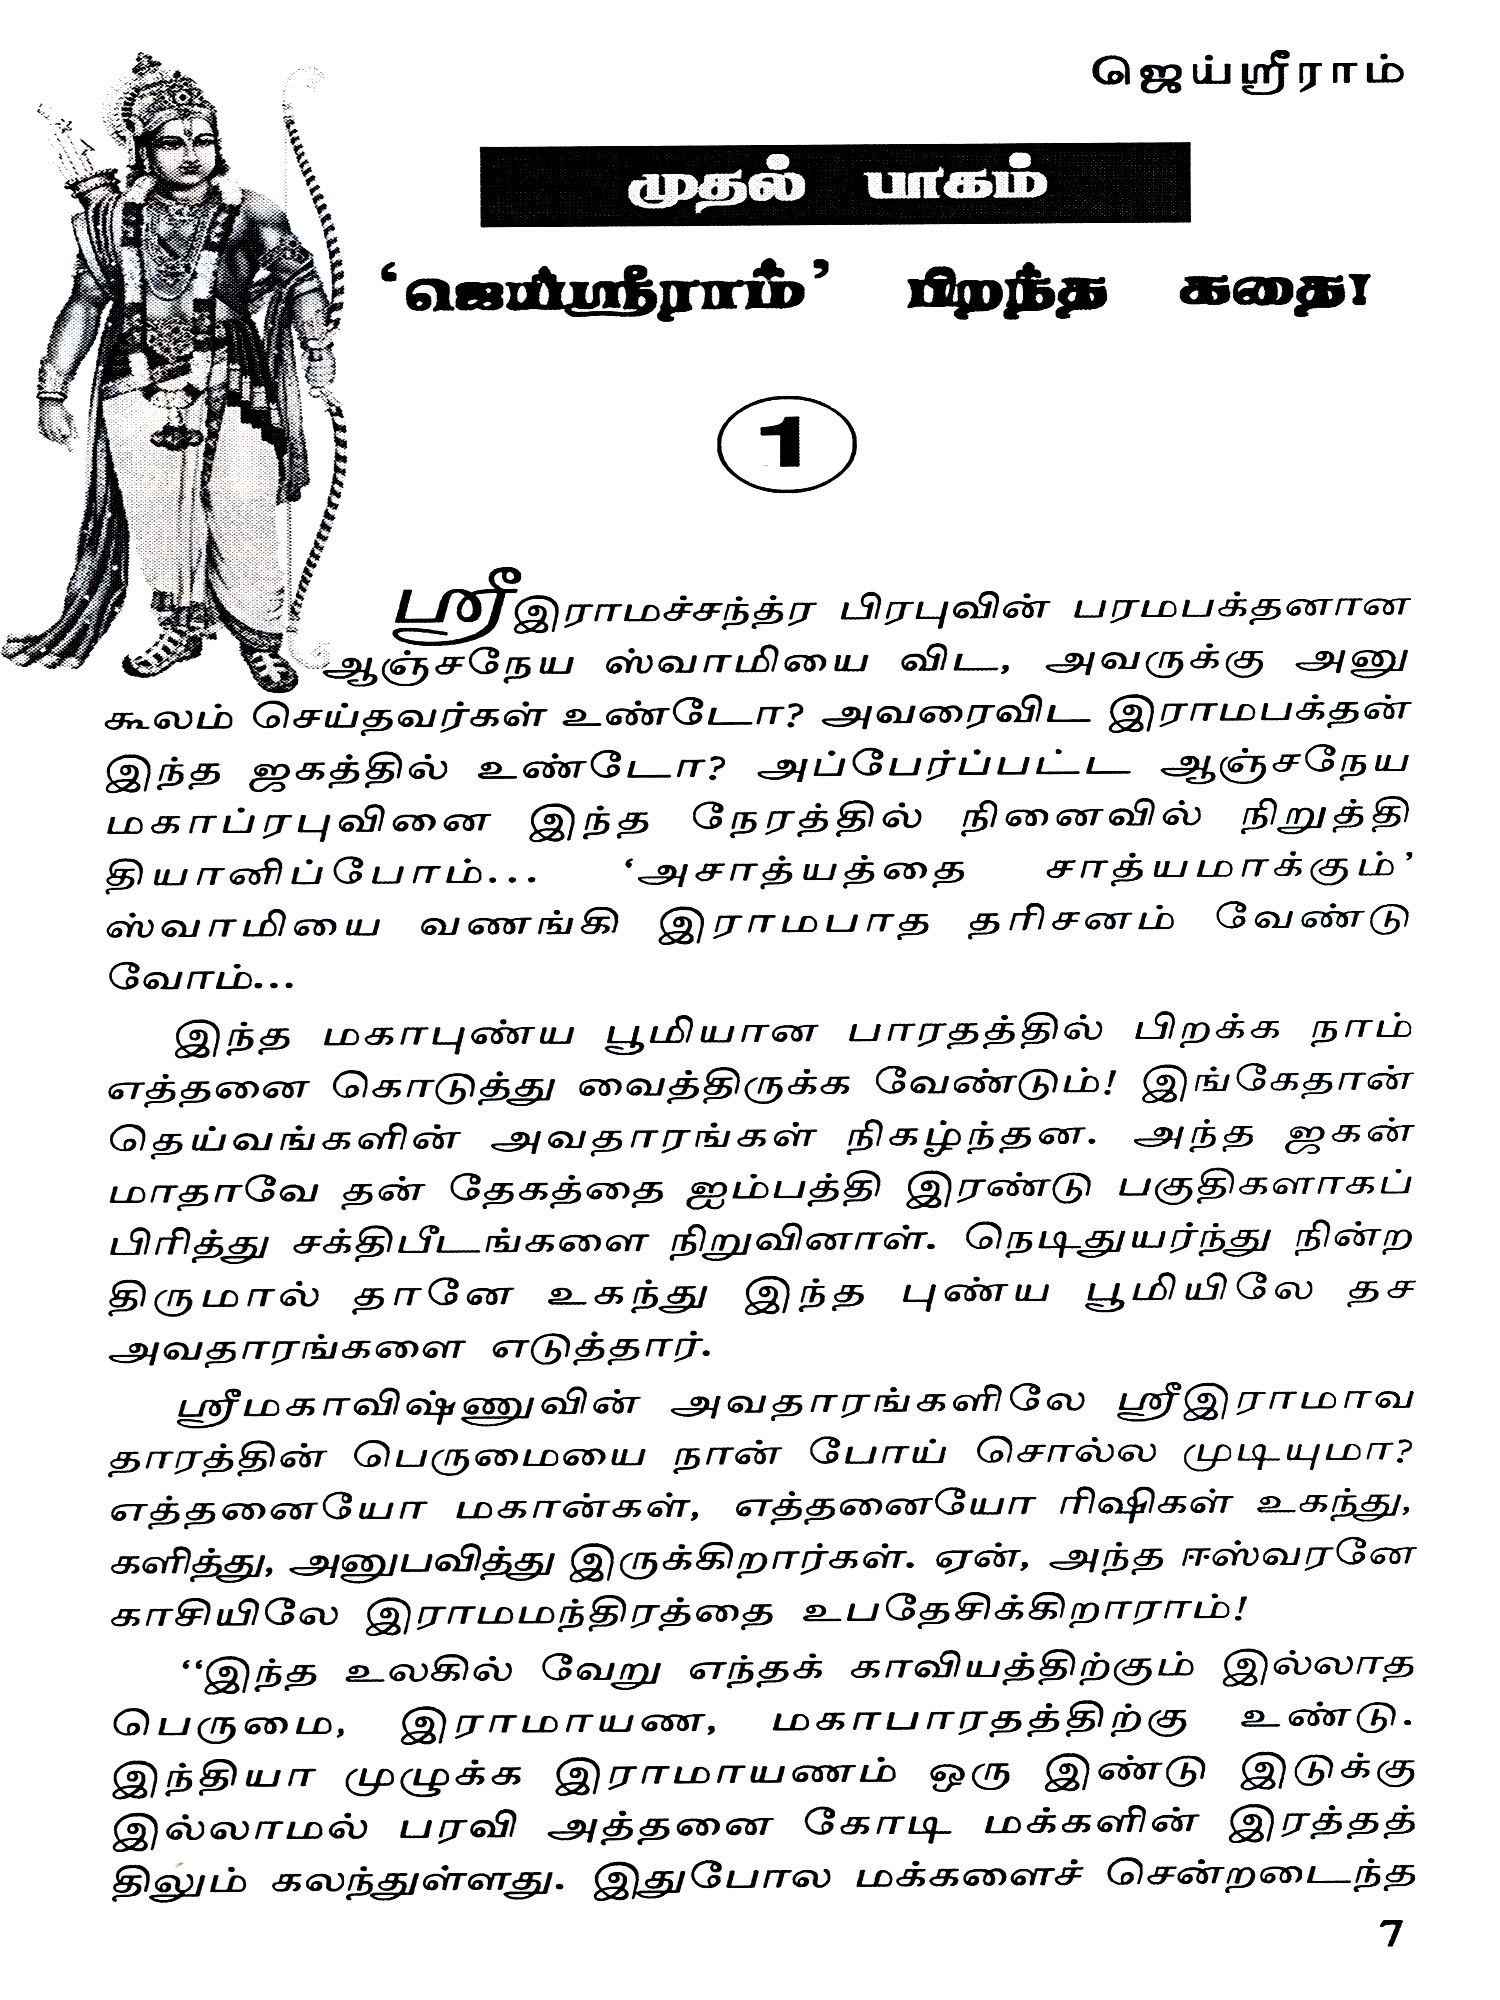 ஜெய்ஸ்ரீராம்
முதல் பாகம்
‘ஜெய்ஸ்ரீராம்’ பிறந்த கதை!
1
ஸ்ரீஇராமச்சந்த்ர பிரபுவின் பரமபக்தனான
ஆஞ்சநேய ஸ்வாமியை விட, அவருக்கு அனு
கூலம் செய்தவர்கள் உண்டோ? அவரைவிட இராமபக்தன்
இந்த ஜகத்தில் உண்டோ? அப்பேர்ப்பட்ட ஆஞ்சநேய
மகாப்ரபுவினை இந்த நேரத்தில் நினைவில் நிறுத்தி
தியானிப்போம்... ‘அசாத்யத்தை சாத்யமாக்கும்’
ஸ்வாமியை வணங்கி இராமபாத தரிசனம் வேண்டு
வோம்...
இந்த மகாபுண்ய பூமியான பாரதத்தில் பிறக்க நாம்
எத்தனை கொடுத்து வைத்திருக்க வேண்டும்! இங்கேதான்
தெய்வங்களின் அவதாரங்கள் நிகழ்ந்தன. அந்த ஜகன்
மாதாவே தன் தேகத்தை ஐம்பத்தி இரண்டு பகுதிகளாகப்
பிரித்து சக்திபீடங்களை நிறுவினாள். நெடிதுயர்ந்து நின்ற
திருமால் தானே உகந்து இந்த புண்ய பூமியிலே தச
அவதாரங்களை எடுத்தார்.
ஸ்ரீமகாவிஷ்ணுவின் அவதாரங்களிலே ஸ்ரீஇராமாவ
தாரத்தின் பெருமையை நான் போய் சொல்ல முடியுமா?
எத்தனையோ மகான்கள், எத்தனையோ ரிஷிகள் உகந்து,
களித்து, அனுபவித்து இருக்கிறார்கள். ஏன், அந்த ஈஸ்வரனே
காசியிலே இராமமந்திரத்தை உபதேசிக்கிறாராம்!
‘‘இந்த உலகில் வேறு எந்தக் காவியத்திற்கும் இல்லாத
பெருமை, இராமாயண, மகாபாரதத்திற்கு உண்டு.
இந்தியா முழுக்க இராமாயணம் ஒரு இண்டு இடுக்கு
இல்லாமல் பரவி அத்தனை கோடி மக்களின் இரத்தத்
திலும் கலந்துள்ளது. இதுபோல மக்களைச் சென்றடைந்த
7